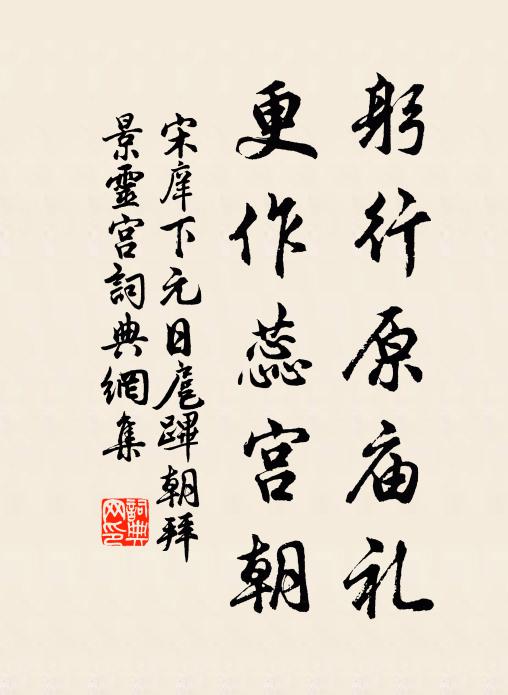 躬行原庙礼
更作蕊宫朝
宋庠下元日扈蹕朝拜
景靈宫詞典網集
詞典
网印